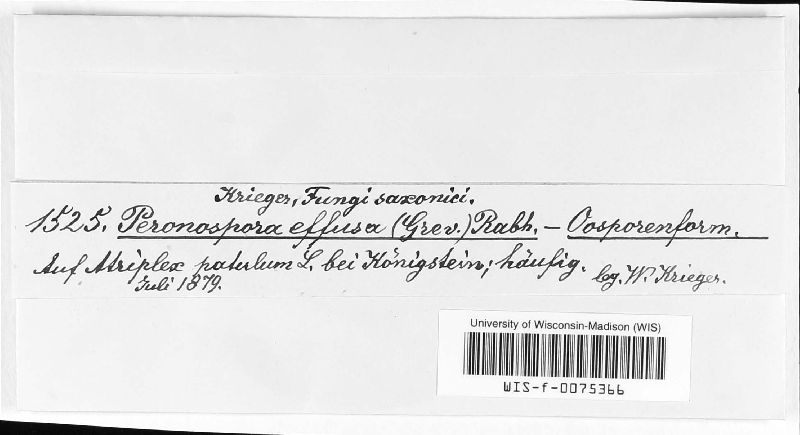 Krieger, Fungi saxonici.
1525. Peronospora effusa (Grev.) Rabh. – Oosporenform.
Auf Atriplex patulum L. bei Königstein; häufig.
Juli 1879. lg. W. Krieger.
University of Wisconsin-Madison (WIS)
WIS-f-0075366